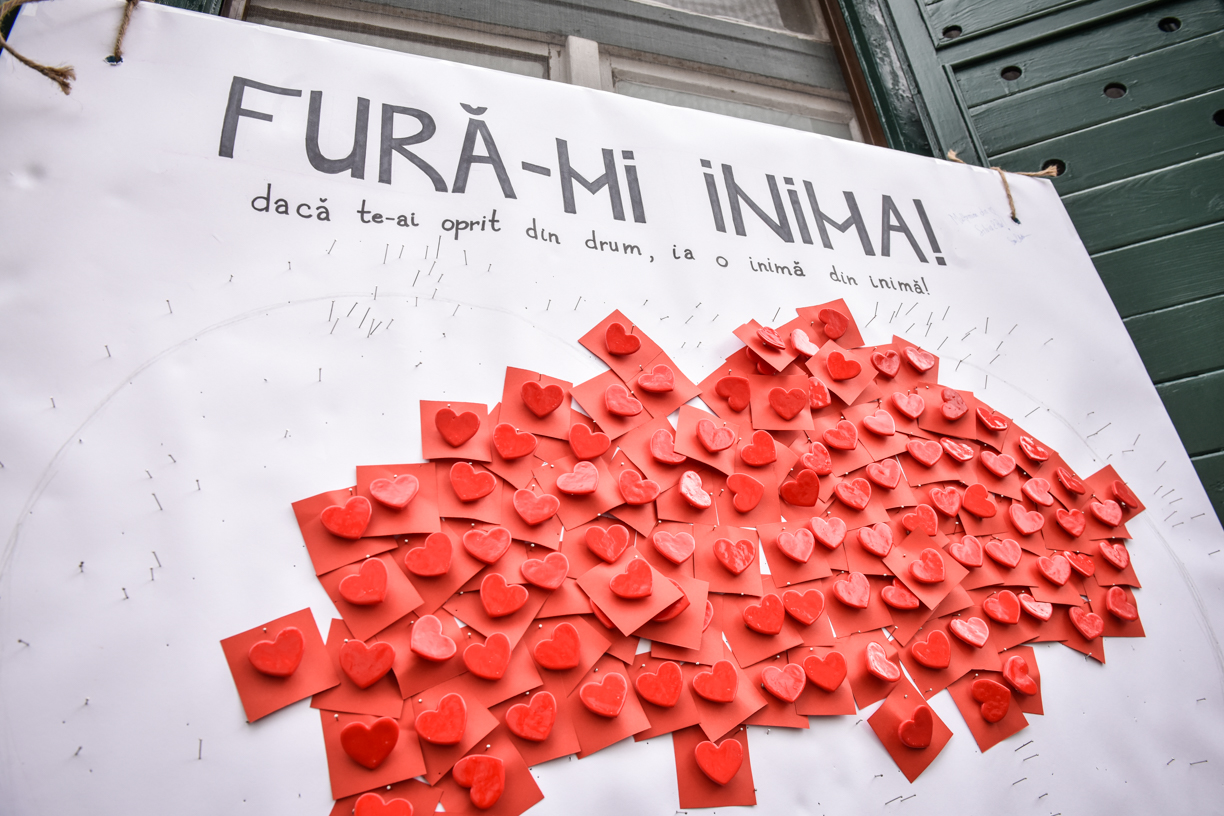 FURĂ-Mi iNiMA!
dacă te-ai oprit din drum, ia o inimă din inimă!